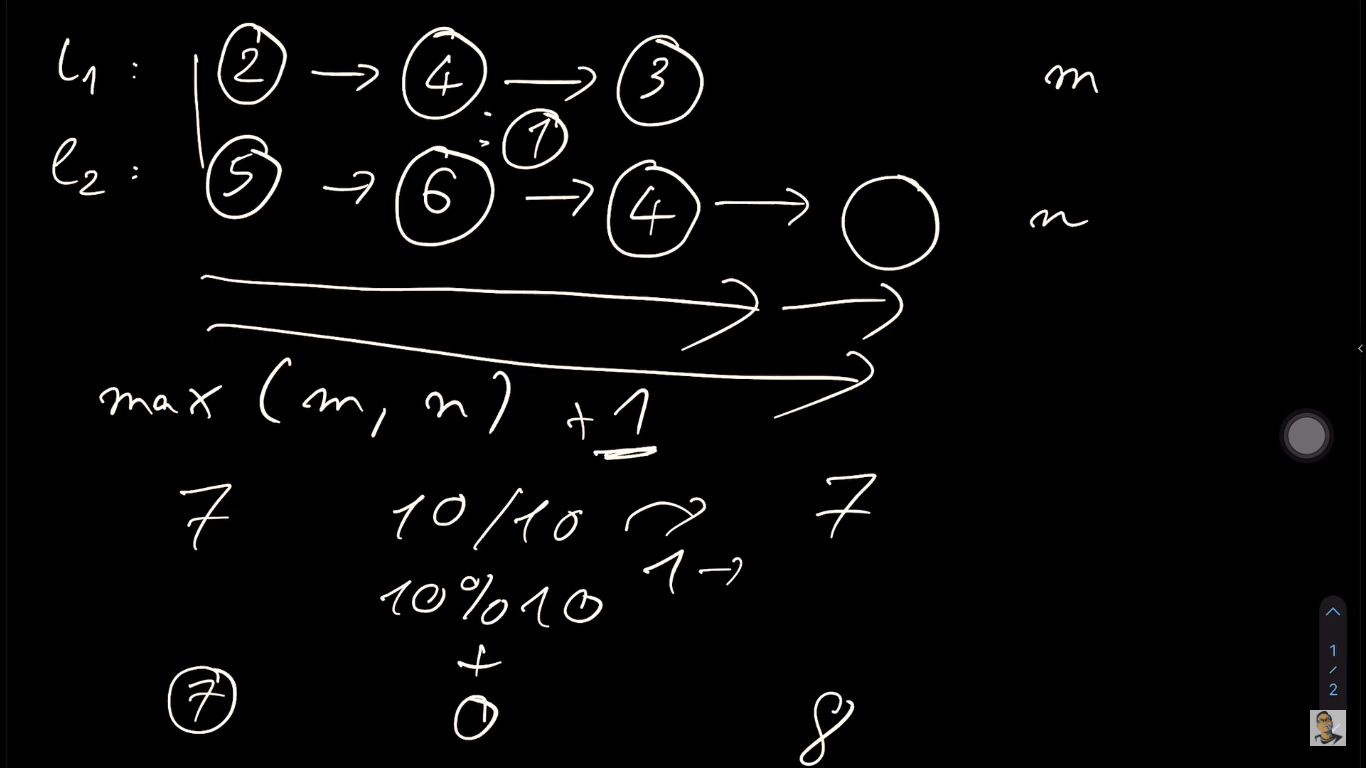 l1 : 2 → 4 → 3 m
1
l2 : 5 → 6 → 4 → n
max (m, n) + 1
7 10/10 7
1 →
10%10
+
7 0 8
1
/
2